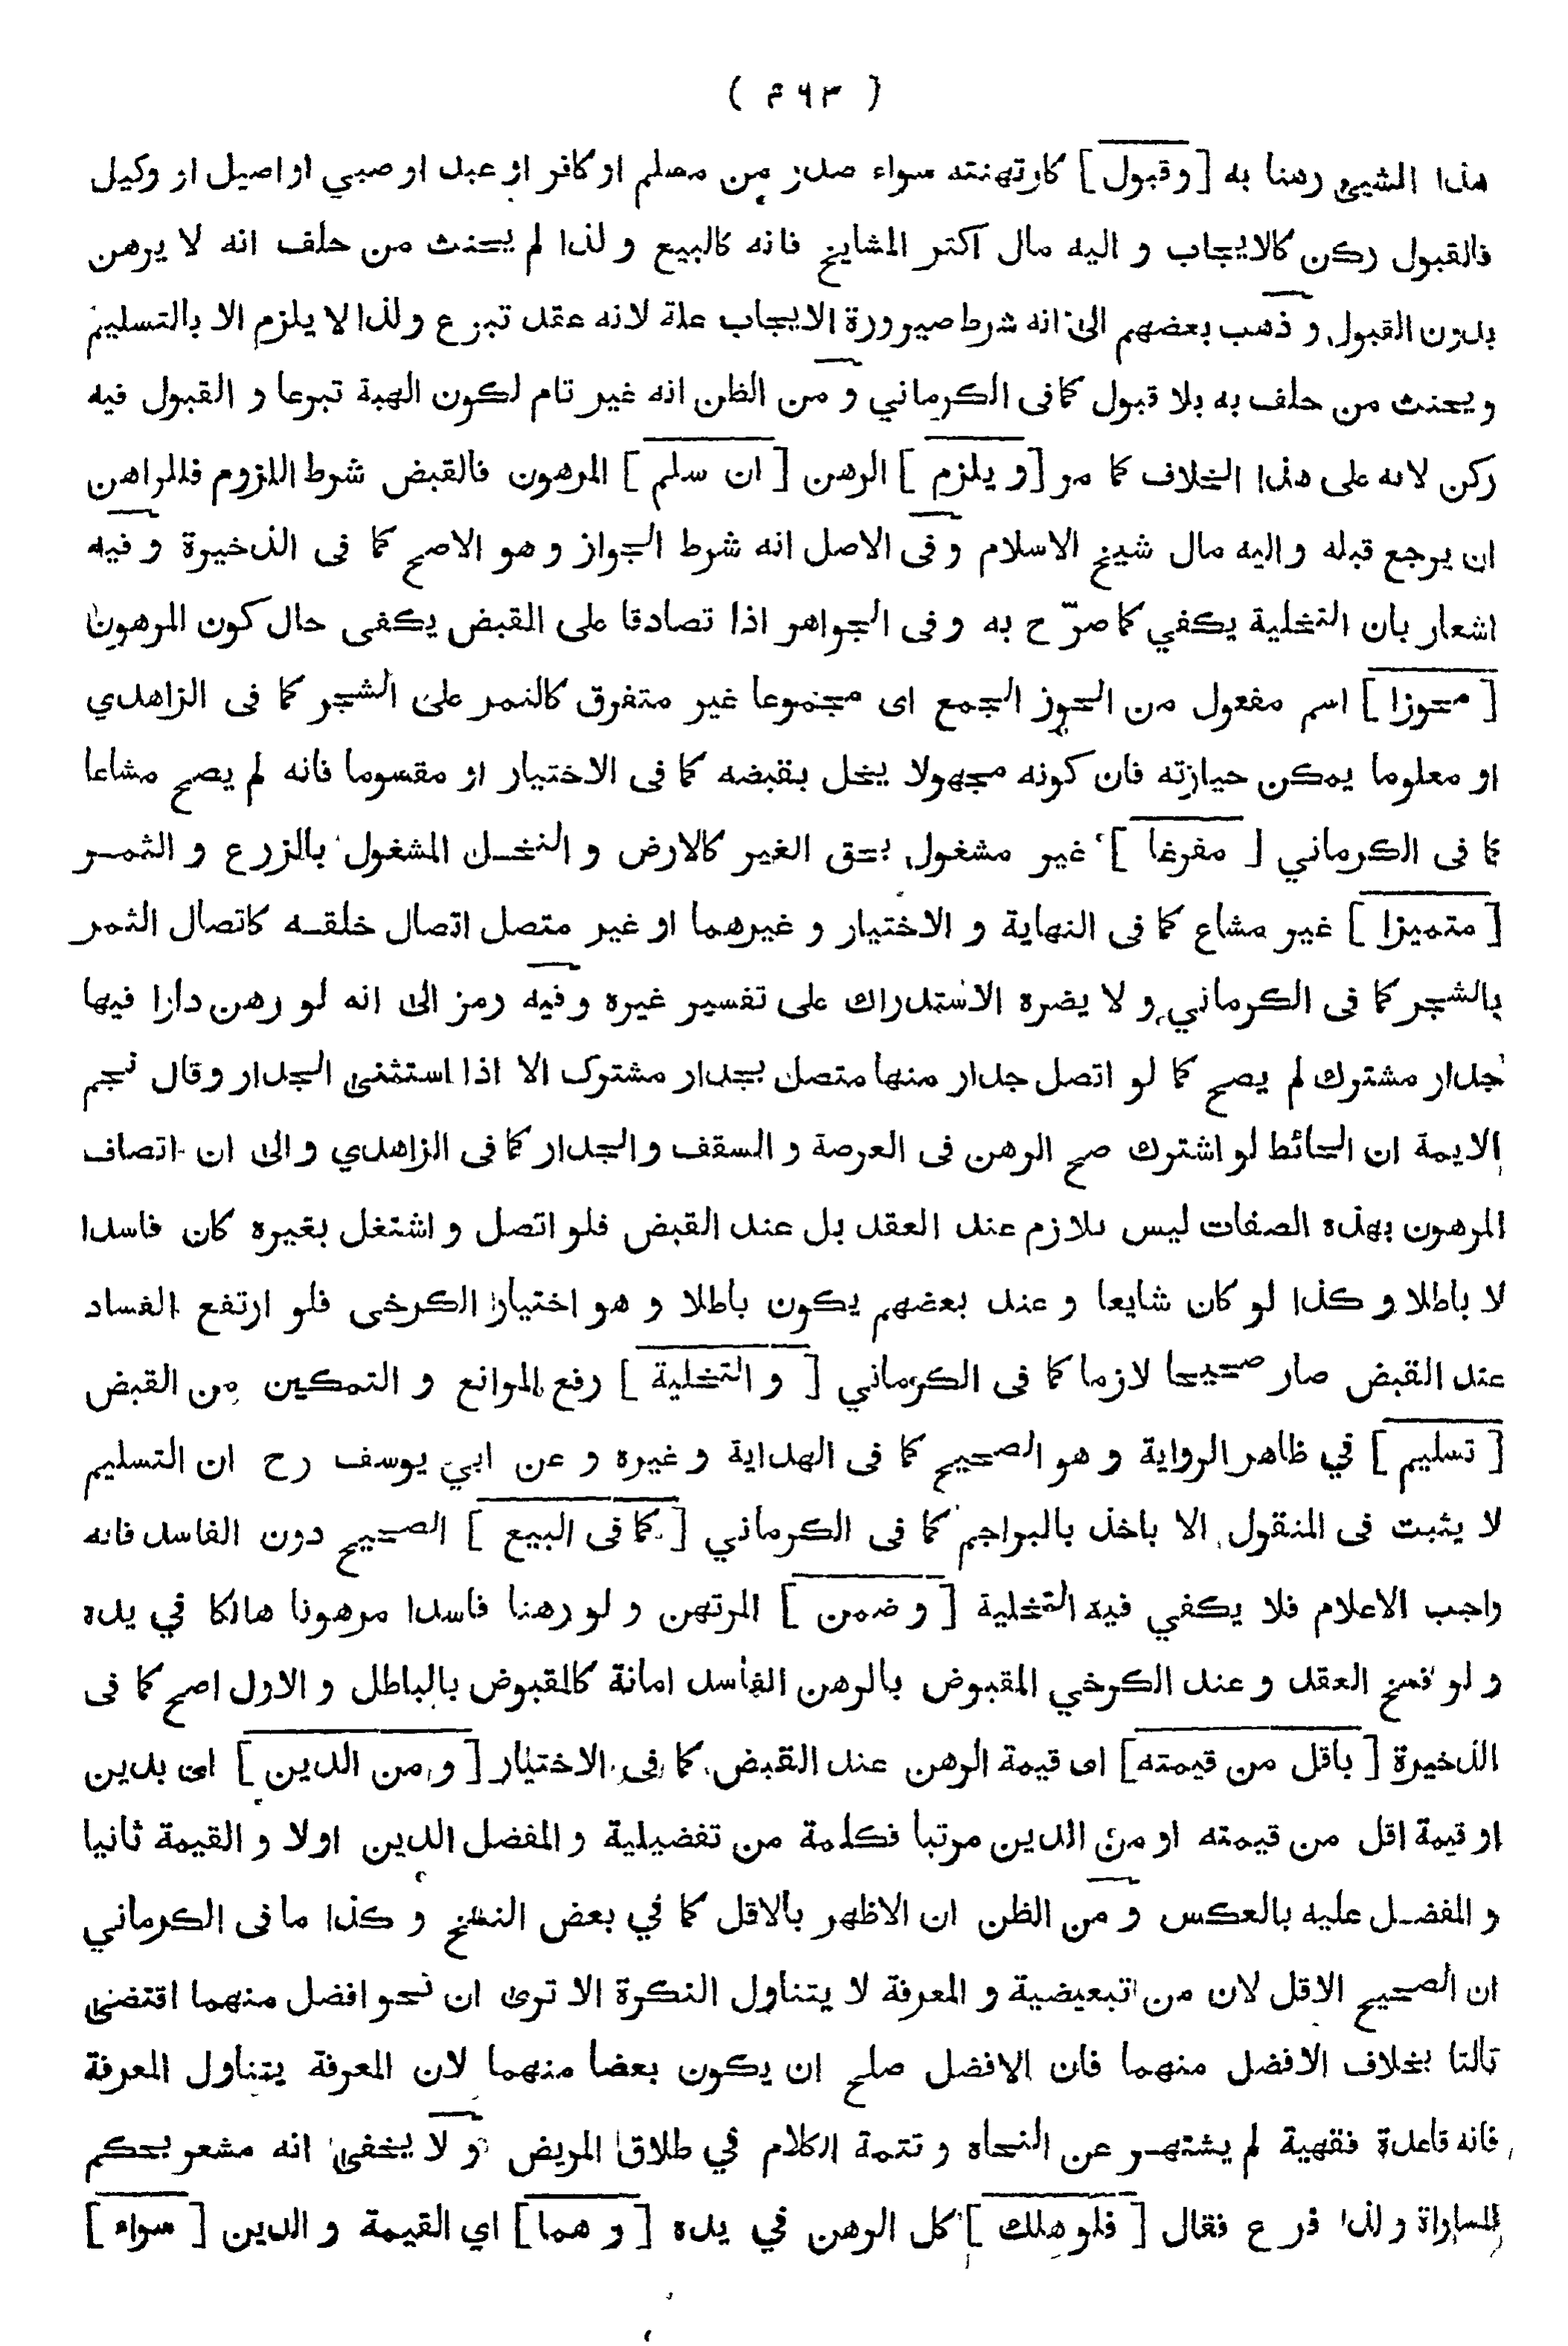 ( ٤٦٣ )
هذا الشيئ رهنا به [ وقبول ] كارتهنته سواء صدر من مسلم او كافر او عبد او صبي او اصيل او وكيل
فالقبول ركن كالايجاب و اليه مال اكثر المشايخ فانه كالبيع و لذا لم يحنث من حلف انه لا يرهن
بدون القبول و ذهب بعضهم الى انه شرط صيرورة الايجاب علة لانه عقد تبرع ولذا لا يلزم الا بالتسليم
و يحنث من حلف به بلا قبول كما فى الكرماني و من الظن انه غير تام لكون الهبة تبرعا و القبول فيه
ركن لانه على هذا الخلاف كما مر [ و يلزم ] الرهن [ ان سلم ] المرهون فالقبض شرط اللزوم فللراهن
ان يرجع قبله و اليه مال شيخ الاسلام و فى الاصل انه شرط الجواز و هو الاصح كما فى الذخيرة و فيه
اشعار بان التخلية يكفي كما صرّح به و فى الجواهر اذا تصادقا على القبض يكفى حال كون المرهون
[ محوزا ] اسم مفعول من الحوز الجمع اى مجموعا غير متفرق كالثمر على الشجر كما فى الزاهدي
او معلوما يمكن حيازته فان كونه مجهولا يخل بقبضه كما فى الاختيار او مقسوما فانه لم يصح مشاعا
كما فى الكرماني [ مفرغا ] غير مشغول بحق الغير كالارض و النخل المشغول بالزرع و الثمر
[ متميزا ] غير مشاع كما فى النهاية و الاختيار و غيرهما او غير متصل اتصال خلقه كاتصال الثمر
بالشجر كما فى الكرماني و لا يضره الاستدراك على تفسير غيره و فيه رمز الى انه لو رهن دارا فيها
جدار مشترك لم يصح كما لو اتصل جدار منها متصل بجدار مشترك الا اذا استثنى الجدار وقال نجم
الايمة ان الحائط لو اشترك صح الرهن فى العرصة و السقف والجدار كما فى الزاهدي و الى ان اتصاف
المرهون بهذه الصفات ليس بلازم عند العقد بل عند القبض فلو اتصل و اشتغل بغيره كان فاسدا
لا باطلا و كذا لو كان شايعا و عند بعضهم يكون باطلا و هو اختيار الكرخى فلو ارتفع الفساد
عند القبض صار صحيحا لازما كما فى الكرماني [ و التخلية ] رفع الموانع و التمكين من القبض
[ تسليم ] في ظاهر الرواية و هو الصحيح كما فى الهداية و غيره و عن ابي يوسف رح ان التسليم
لا يثبت فى المنقول الا باخذ بالبراجم كما فى الكرماني [ كما فى البيع ] الصحيح دون الفاسد فانه
واجب الاعلام فلا يكفي فيه التخلية [ و ضمن ] المرتهن و لو رهنا فاسدا مرهونا هالكا في يده
و لو فسخ العقد و عند الكرخي المقبوض بالرهن الفاسد امانة كالمقبوض بالباطل و الاول اصح كما فى
الذخيرة [ باقل من قيمته ] اى قيمة الرهن عند القبض كما فى الاختيار [ و من الدين ] اى بدين
او قيمة اقل من قيمته او من الدين مرتبا فكلمة من تفضيلية و المفضل الدين اولا و القيمة ثانيا
و المفضل عليه بالعكس و من الظن ان الاظهر بالاقل كما في بعض النسخ و كذا ما فى الكرماني
ان الصحيح الاقل لان من تبعيضية و المعرفة لا يتناول النكرة الا ترى ان نحو افضل منهما اقتضى
ثالثا بخلاف الافضل منهما فان الافضل صلح ان يكون بعضا منهما لان المعرفة يتناول المعرفة
فانه قاعدة فقهية لم يشتهر عن النحاه و تتمة الكلام في طلاق المريض و لا يخفى انه مشعر بحكم
المساواة و لذا فرع فقال [ فلو هلك ] كل الرهن في يده [ و هما ] اي القيمة و الدين [ سواء ]